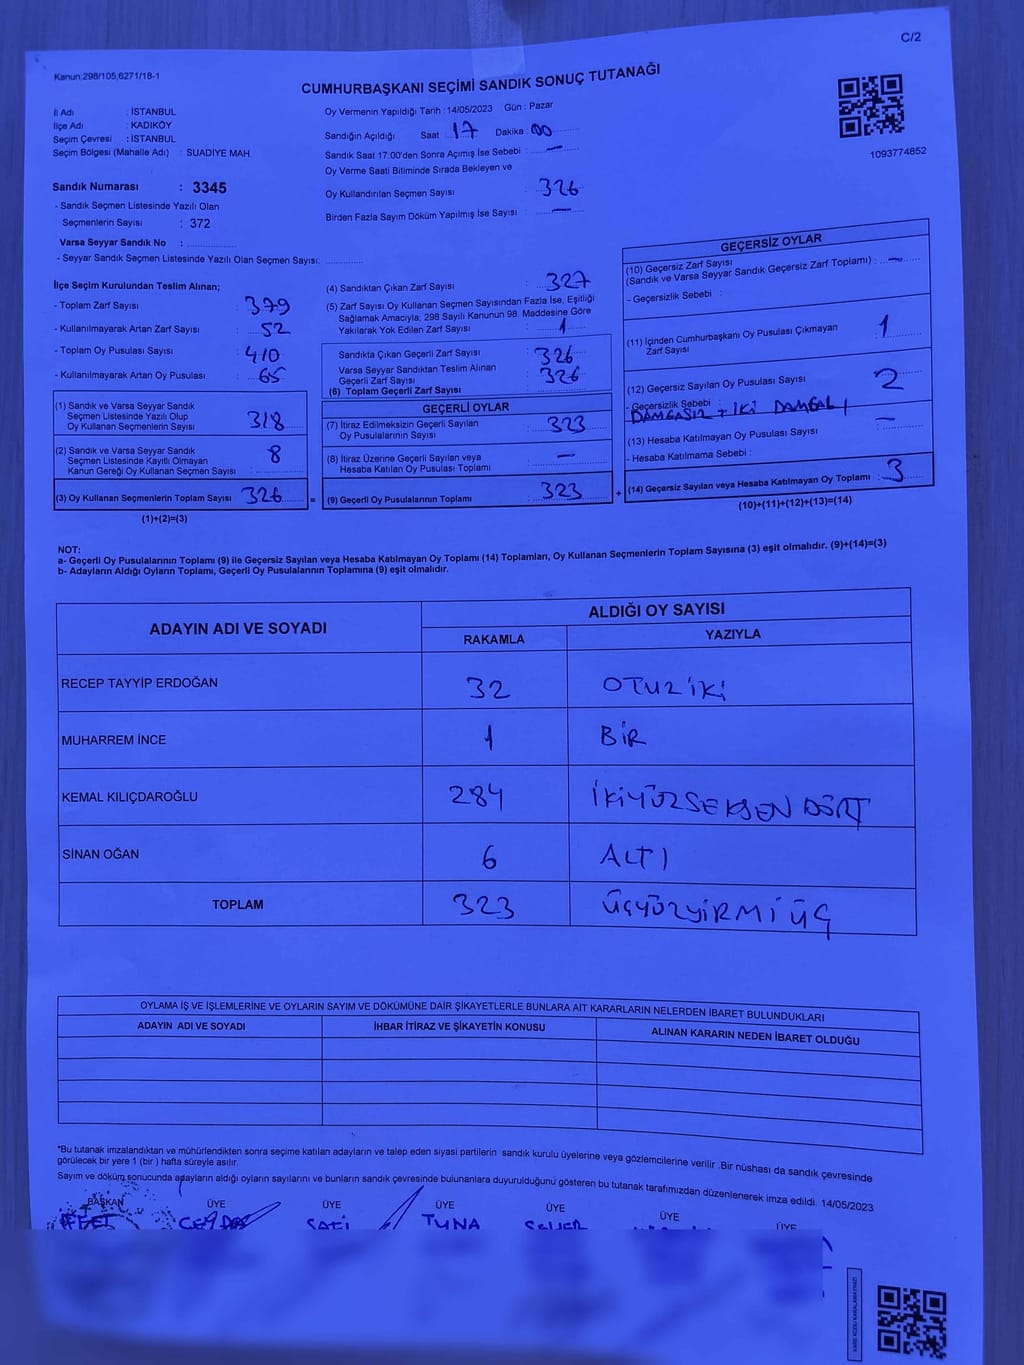 C/2
Kanun:298/105;6271/18-1
CUMHURBAŞKANI SEÇİMİ SANDIK SONUÇ TUTANAĞI
İl Adı : İSTANBUL
İlçe Adı : KADIKÖY
Seçim Çevresi : İSTANBUL
Seçim Bölgesi (Mahalle Adı) : SUADİYE MAH.
Sandık Numarası : 3345
- Sandık Seçmen Listesinde Yazılı Olan
Seçmenlerin Sayısı : 372
Varsa Seyyar Sandık No :
- Seyyar Sandık Seçmen Listesinde Yazılı Olan Seçmen Sayısı:
Oy Vermenin Yapıldığı Tarih : 14/05/2023 Gün : Pazar
Sandığın Açıldığı Saat : 17 Dakika : 00
Sandık Saat 17:00'den Sonra Açımış İse Sebebi : —
Oy Verme Saati Bitiminde Sırada Bekleyen ve
Oy Kullandırılan Seçmen Sayısı : 326
Birden Fazla Sayım Döküm Yapılmış İse Sayısı : —
1093774852
İlçe Seçim Kurulundan Teslim Alınan;
- Toplam Zarf Sayısı : 379
- Kullanılmayarak Artan Zarf Sayısı : 52
- Toplam Oy Pusulası Sayısı : 410
- Kullanılmayarak Artan Oy Pusulası : 65
(1) Sandık ve Varsa Seyyar Sandık
Seçmen Listesinde Yazılı Olup
Oy Kullanan Seçmenlerin Sayısı 318
(2) Sandık ve Varsa Seyyar Sandık
Seçmen Listesinde Kayıtlı Olmayan
Kanun Gereği Oy Kullanan Seçmen Sayısı : 8
(3) Oy Kullanan Seçmenlerin Toplam Sayısı : 326 =
(1)+(2)=(3)
(4) Sandıktan Çıkan Zarf Sayısı : 327
(5) Zarf Sayısı Oy Kullanan Seçmen Sayısından Fazla İse, Eşitliği
Sağlamak Amacıyla; 298 Sayılı Kanunun 98. Maddesine Göre
Yakılarak Yok Edilen Zarf Sayısı : 1
Sandıkta Çıkan Geçerli Zarf Sayısı : 326
Varsa Seyyar Sandıktan Teslim Alınan
Geçerli Zarf Sayısı : 326
(6) Toplam Geçerli Zarf Sayısı
GEÇERLİ OYLAR
(7) İtiraz Edilmeksizin Geçerli Sayılan
Oy Pusulalarının Sayısı : 323
(8) İtiraz Üzerine Geçerli Sayılan veya
Hesaba Katılan Oy Pusulası Toplamı : —
(9) Geçerli Oy Pusulalarının Toplamı : 323 +
GEÇERSİZ OYLAR
(10) Geçersiz Zarf Sayısı
(Sandık ve Varsa Seyyar Sandık Geçersiz Zarf Toplamı) : —
- Geçersizlik Sebebi :
(11) İçinden Cumhurbaşkanı Oy Pusulası Çıkmayan
Zarf Sayısı 1
(12) Geçersiz Sayılan Oy Pusulası Sayısı : 2
- Geçersizlik Sebebi :
DAMGASIZ + İKİ DAMGALI
(13) Hesaba Katılmayan Oy Pusulası Sayısı : —
- Hesaba Katılmama Sebebi :
(14) Geçersiz Sayılan veya Hesaba Katılmayan Oy Toplamı : 3
(10)+(11)+(12)+(13)=(14)
NOT:
a- Geçerli Oy Pusulalarının Toplamı (9) ile Geçersiz Sayılan veya Hesaba Katılmayan Oy Toplamı (14) Toplamları, Oy Kullanan Seçmenlerin Toplam Sayısına (3) eşit olmalıdır. (9)+(14)=(3)
b- Adayların Aldığı Oyların Toplamı, Geçerli Oy Pusulalarının Toplamına (9) eşit olmalıdır.
ADAYIN ADI VE SOYADI
ALDIĞI OY SAYISI
RAKAMLA YAZIYLA
RECEP TAYYİP ERDOĞAN 32 OTUZ İKİ
MUHARREM İNCE 1 BİR
KEMAL KILIÇDAROĞLU 284 İKİYÜZSEKSEN DÖRT
SİNAN OĞAN 6 ALTI
TOPLAM 323 ÜÇYÜZYİRMİ ÜÇ
OYLAMA İŞ VE İŞLEMLERİNE VE OYLARIN SAYIM VE DÖKÜMÜNE DAİR ŞİKAYETLERLE BUNLARA AİT KARARLARIN NELERDEN İBARET BULUNDUKLARI
ADAYIN ADI VE SOYADI İHBAR İTİRAZ VE ŞİKAYETİN KONUSU ALINAN KARARIN NEDEN İBARET OLDUĞU
*Bu tutanak imzalandıktan ve mühürlendikten sonra seçime katılan adayların ve talep eden siyasi partilerin sandık kurulu üyelerine veya gözlemcilerine verilir .Bir nüshası da sandık çevresinde
görülecek bir yere 1 (bir ) hafta süreyle asılır.
Sayım ve döküm sonucunda adayların aldığı oyların sayılarını ve bunların sandık çevresinde bulunanlara duyurulduğunu gösteren bu tutanak tarafımızdan düzenlenerek imza edildi. 14/05/2023
BAŞKAN ÜYE ÜYE ÜYE ÜYE ÜYE ÜYE
TUNA